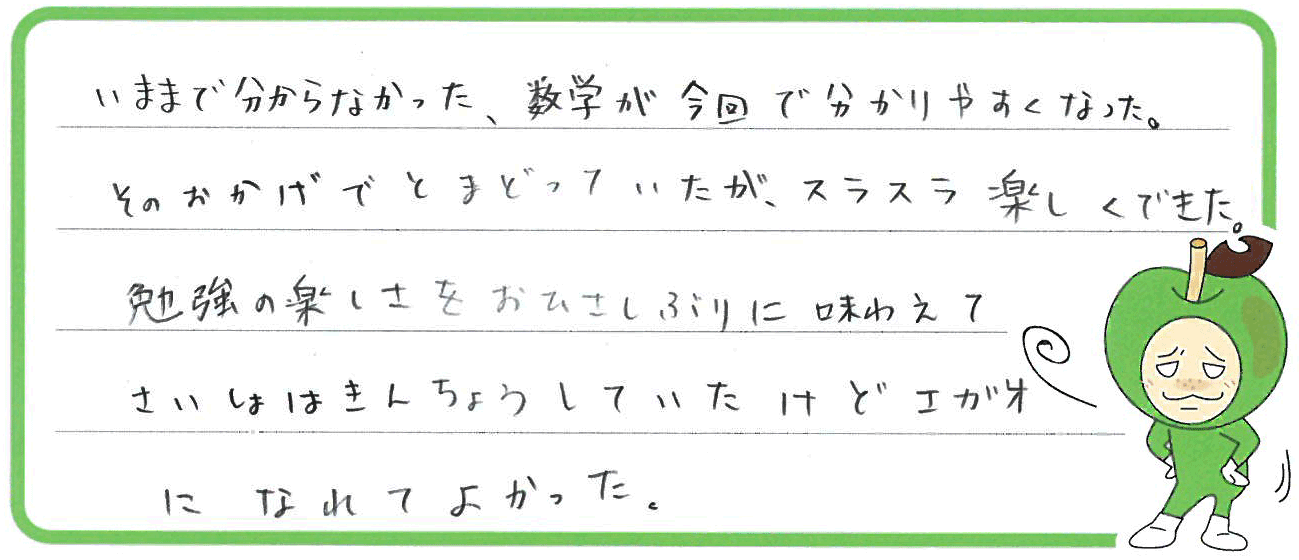 いままで分からなかった、数学が今回で分かりやすくなった。
そのおかげでとまどっていたが、スラスラ楽しくできた。
勉強の楽しさをおひさしぶりに味わえて
さいしょはきんちょうしていたけどエガオ
になれてよかった。